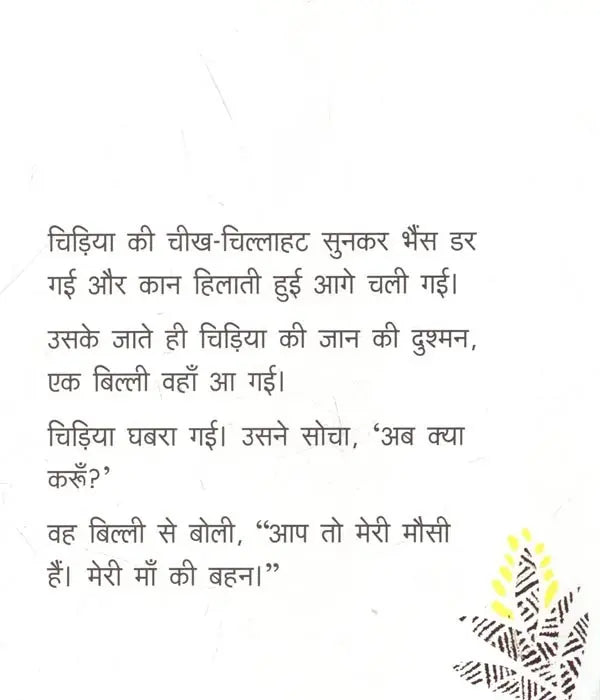 चिड़िया की चीख-चिल्लाहट सुनकर भैंस डर
गई और कान हिलाती हुई आगे चली गई।
उसके जाते ही चिड़िया की जान की दुश्मन,
एक बिल्ली वहाँ आ गई।
चिड़िया घबरा गई। उसने सोचा, ‘अब क्या
करूँ?’
वह बिल्ली से बोली, “आप तो मेरी मौसी
हैं। मेरी माँ की बहन।”